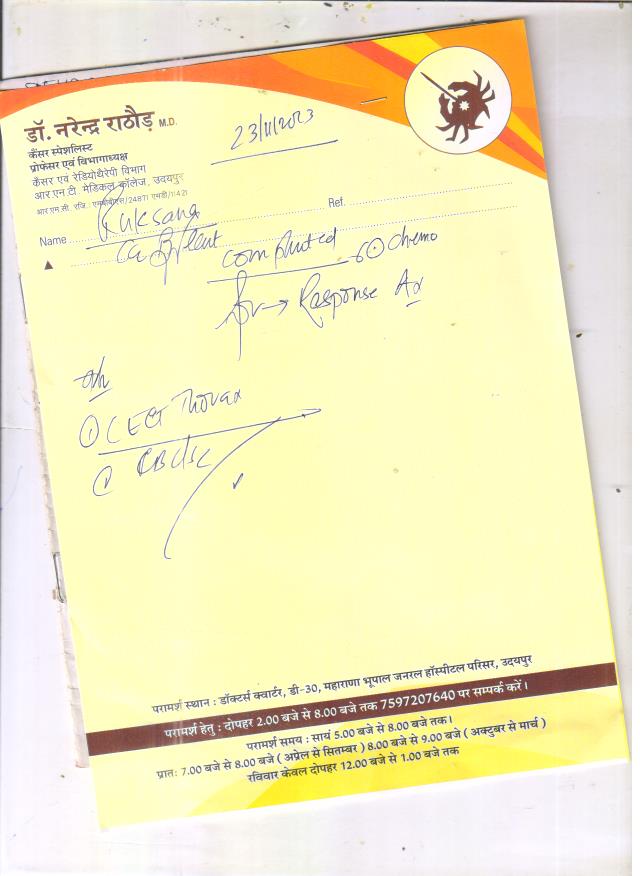 डॉ. नरेन्द्र राठौड़ M.D.
कैंसर स्पेशलिस्ट
प्रोफेसर एवं विभागाध्यक्ष
कैंसर एवं रेडियोथैरेपी विभाग
आर.एन.टी. मेडिकल कॉलेज, उदयपुर
23/11/2023
Name Ruksana Ref.
completed 6 chemo
for → Response Ax
① CECT Thorax
परामर्श स्थान : डॉक्टर्स क्वार्टर, डी-30, महाराणा भूपाल जनरल हॉस्पीटल परिसर, उदयपुर
परामर्श हेतु : दोपहर 2.00 बजे से 8.00 बजे तक 7597207640 पर सम्पर्क करें।
परामर्श समय : सायं 5.00 बजे से 8.00 बजे तक।
प्रातः 7.00 बजे से 8.00 बजे ( अप्रेल से सितम्बर ) 8.00 बजे से 9.00 बजे ( अक्टुबर से मार्च )
रविवार केवल दोपहर 12.00 बजे से 1.00 बजे तक